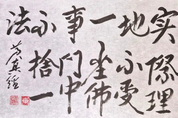 实際理
地不受
一尘佛
事门中
不捨一
法